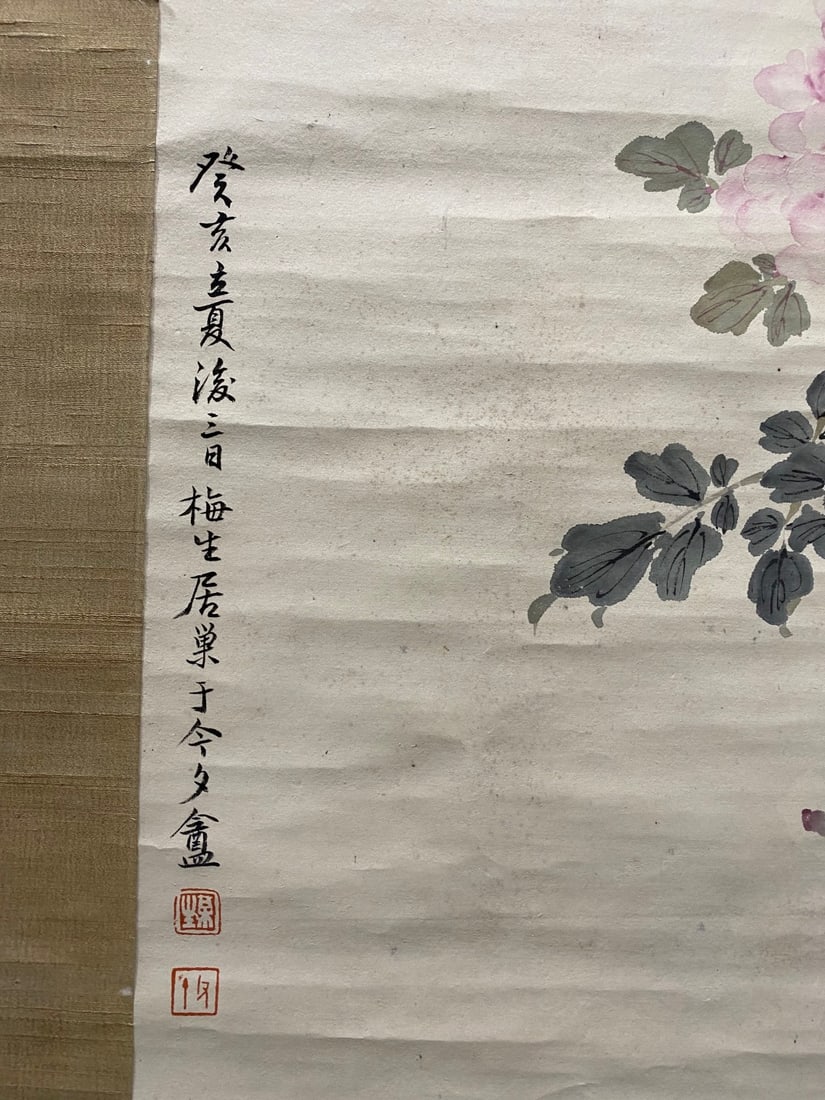 癸亥立夏後三日梅生居巢于今夕盦